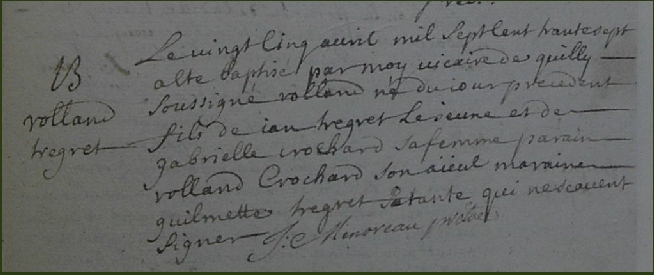 B
rolland
tregret
Le vingt cinq auril mil sept cent trante sept
a été baptisé par moy vicaire de quilly
soussigné rolland né du iour precedent
fils de ian tregret Le ieune et de
gabrielle crochard sa femme parain
rolland Crochard son aieul maraine
guilmette tregret sa tante qui ne scauent
signer J: Minoreau prêtre